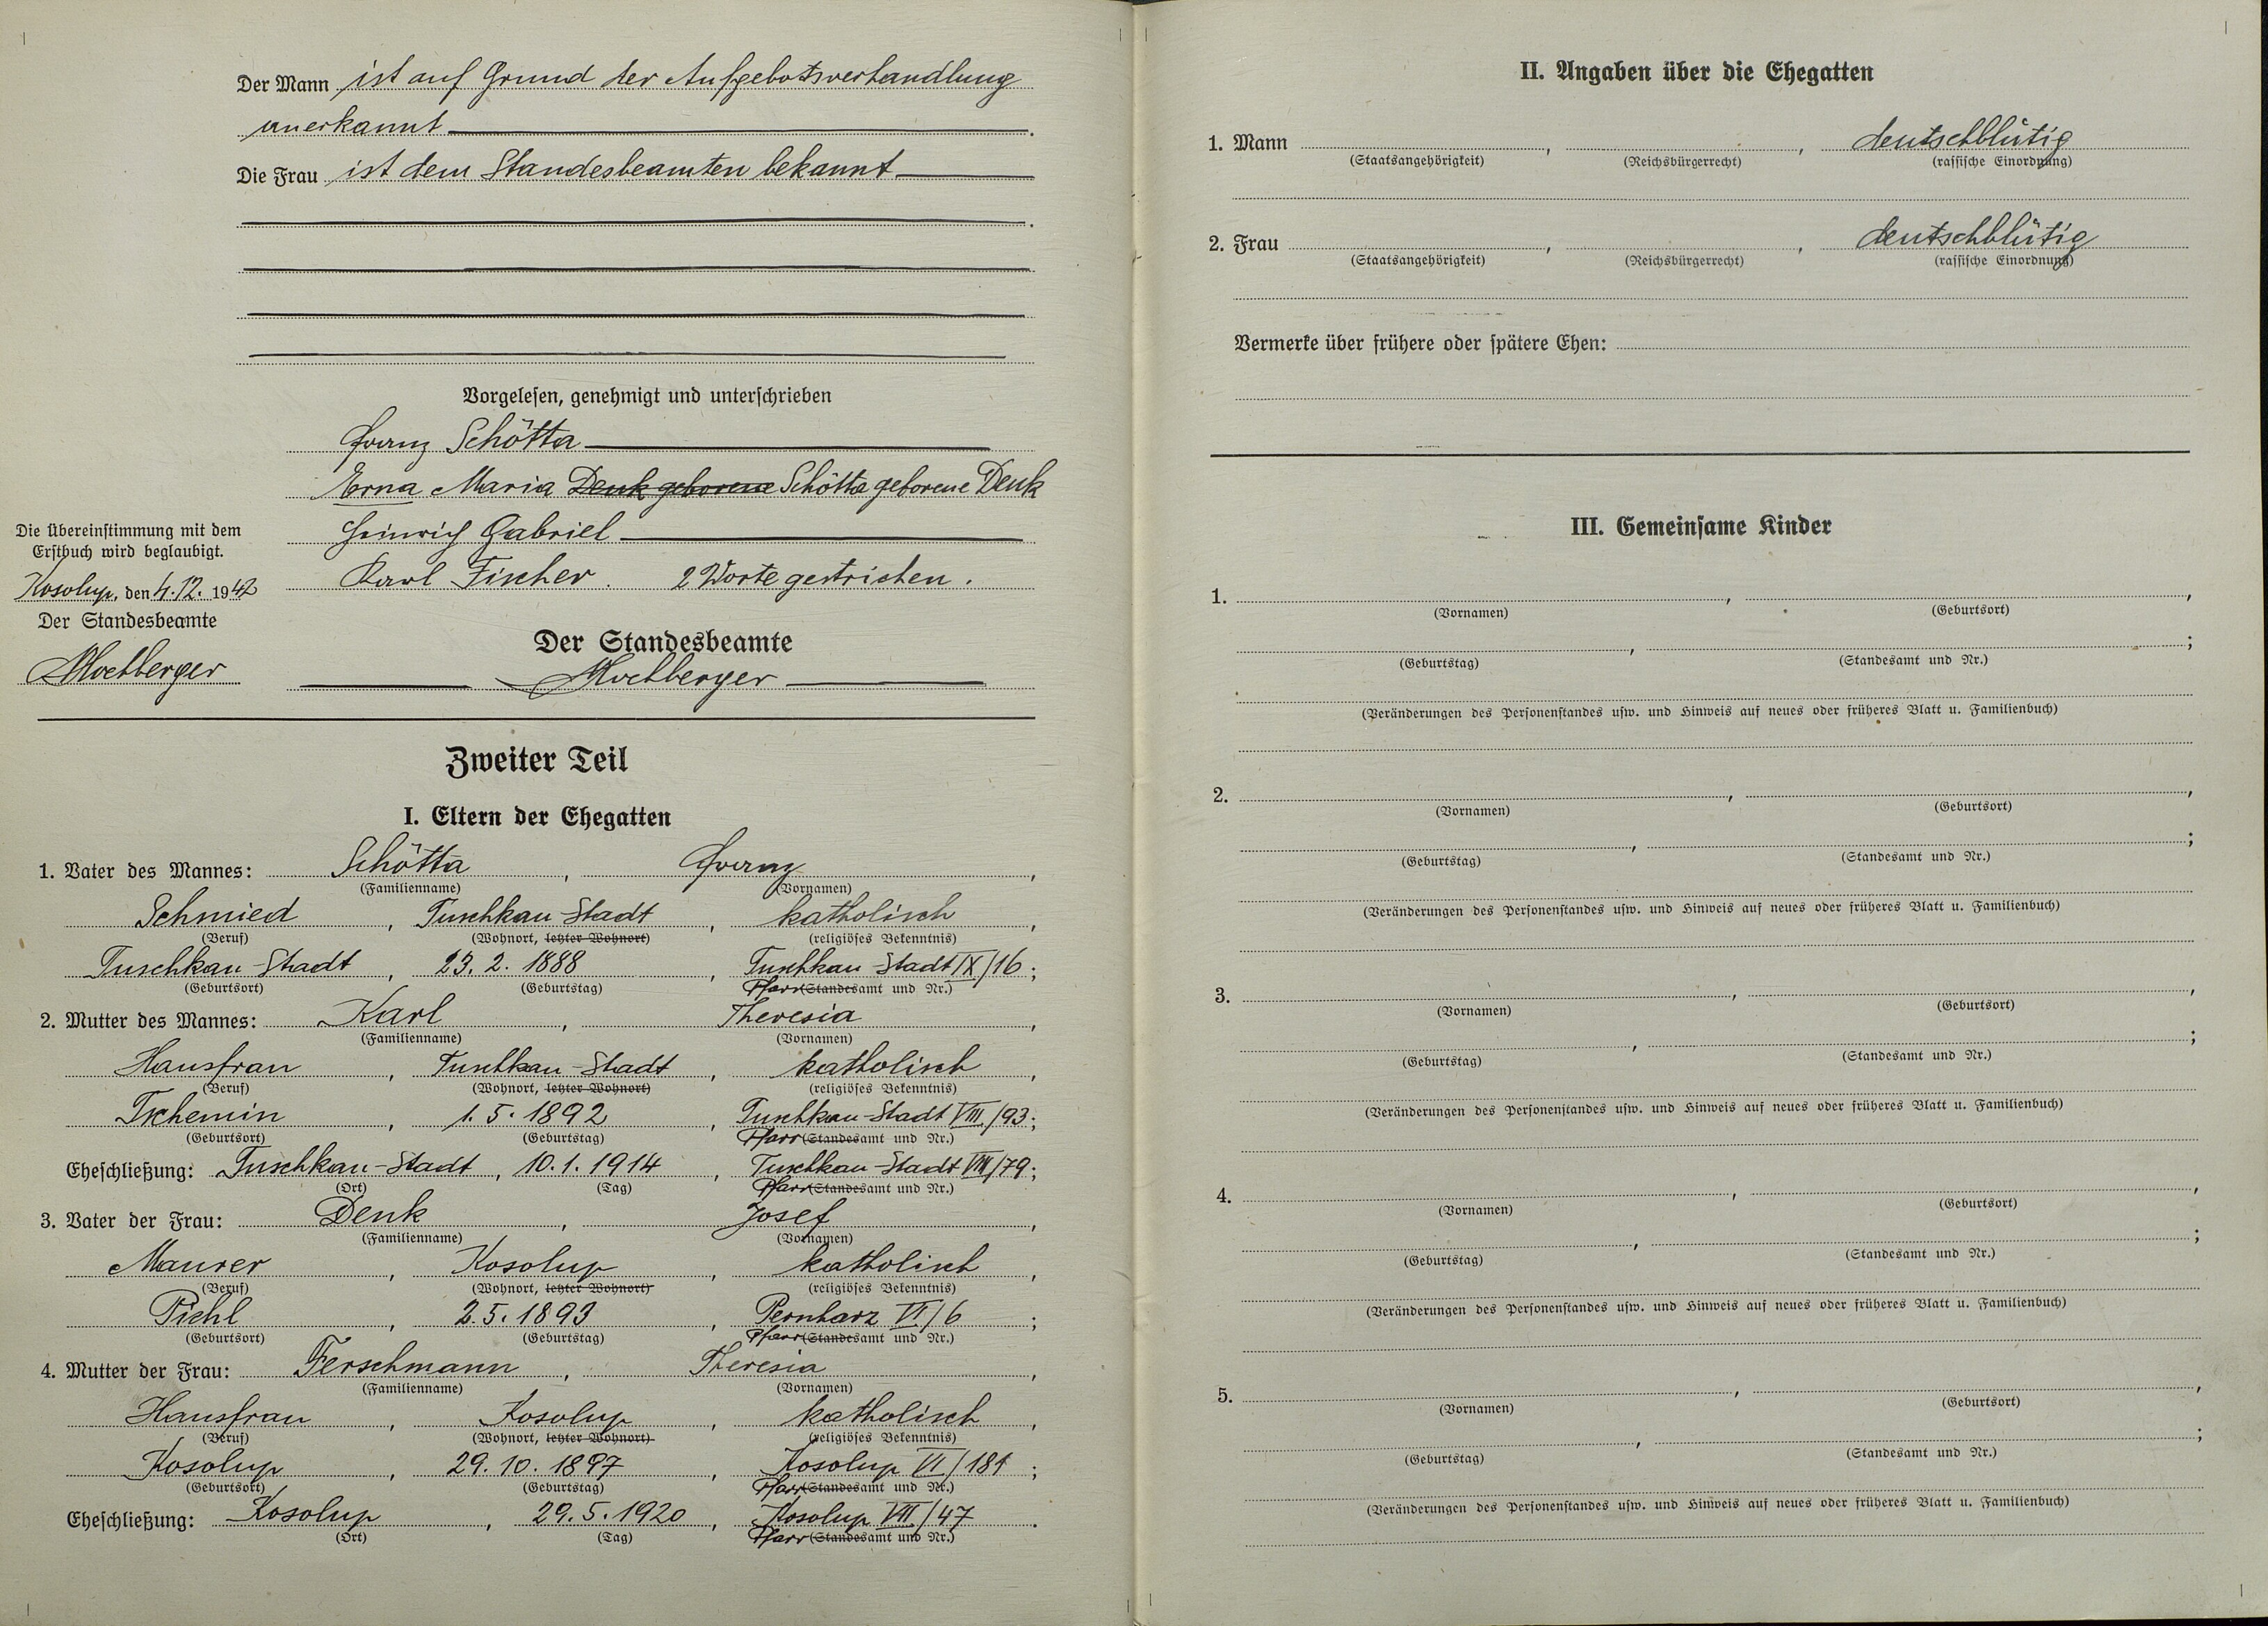 Der Mann ist auf Grund der Aufgebotsverhandlung
anerkannt.
Die Frau ist dem Standesbeamten bekannt
Vorgelesen, genehmigt und unterschrieben
Franz Schötta
Erna Maria Denk geborene Schötta geborene Denk
Heinrich Gabriel
Karl Fischer. 2 Worte gestrichen.
Die Übereinstimmung mit dem
Erstbuch wird beglaubigt.
Kosolup, den 4.12. 1942
Der Standesbeamte
Hochberger
Der Standesbeamte
Hochberger
Zweiter Teil
I. Eltern der Ehegatten
1. Vater des Mannes: Schötta, Franz,
(Familienname) (Vornamen)
Schmied, Tuschkau-Stadt, katholisch,
(Beruf) (Wohnort, letzter Wohnort) (religiöses Bekenntnis)
Tuschkau-Stadt, 23. 2. 1888, Tuschkau-Stadt IX/16;
(Geburtsort) (Geburtstag) Pfarr(Standesamt und Nr.)
2. Mutter des Mannes: Karl, Theresia,
(Familienname) (Vornamen)
Hausfrau, Tuschkau-Stadt, katholisch,
(Beruf) (Wohnort, letzter Wohnort) (religiöses Bekenntnis)
Tschemin, 1. 5. 1892, Tuschkau-Stadt VIII/93;
(Geburtsort) (Geburtstag) Pfarr(Standesamt und Nr.)
Eheschließung: Tuschkau-Stadt, 10. 1. 1914, Tuschkau-Stadt VIII/79;
(Ort) (Tag) Pfarr(Standesamt und Nr.)
3. Vater der Frau: Denk, Josef,
(Familienname) (Vornamen)
Maurer, Kosolup, katholisch,
(Beruf) (Wohnort, letzter Wohnort) (religiöses Bekenntnis)
Pichl, 2. 5. 1893, Pernharz VI/6;
(Geburtsort) (Geburtstag) Pfarr(Standesamt und Nr.)
4. Mutter der Frau: Ferschmann, Theresia,
(Familienname) (Vornamen)
Hausfrau, Kosolup, katholisch,
(Beruf) (Wohnort, letzter Wohnort) (religiöses Bekenntnis)
Kosolup, 29. 10. 1897, Kosolup VI/181;
(Geburtsort) (Geburtstag) Pfarr(Standesamt und Nr.)
Eheschließung: Kosolup, 29. 5. 1920, Kosolup VII/47.
(Ort) (Tag) Pfarr(Standesamt und Nr.)
II. Angaben über die Ehegatten
1. Mann , , deutschblütig
(Staatsangehörigkeit) (Reichsbürgerrecht) (rassische Einordnung)
2. Frau , , deutschblütig
(Staatsangehörigkeit) (Reichsbürgerrecht) (rassische Einordnung)
Vermerke über frühere oder spätere Ehen:
III. Gemeinsame Kinder
1. , ,
(Vornamen) (Geburtsort)
, ;
(Geburtstag) (Standesamt und Nr.)
(Veränderungen des Personenstandes usw. und Hinweis auf neues oder früheres Blatt u. Familienbuch)
2. , ,
(Vornamen) (Geburtsort)
, ;
(Geburtstag) (Standesamt und Nr.)
(Veränderungen des Personenstandes usw. und Hinweis auf neues oder früheres Blatt u. Familienbuch)
3. , ,
(Vornamen) (Geburtsort)
, ;
(Geburtstag) (Standesamt und Nr.)
(Veränderungen des Personenstandes usw. und Hinweis auf neues oder früheres Blatt u. Familienbuch)
4. , ,
(Vornamen) (Geburtsort)
, ;
(Geburtstag) (Standesamt und Nr.)
(Veränderungen des Personenstandes usw. und Hinweis auf neues oder früheres Blatt u. Familienbuch)
5. , ,
(Vornamen) (Geburtsort)
, ;
(Geburtstag) (Standesamt und Nr.)
(Veränderungen des Personenstandes usw. und Hinweis auf neues oder früheres Blatt u. Familienbuch)